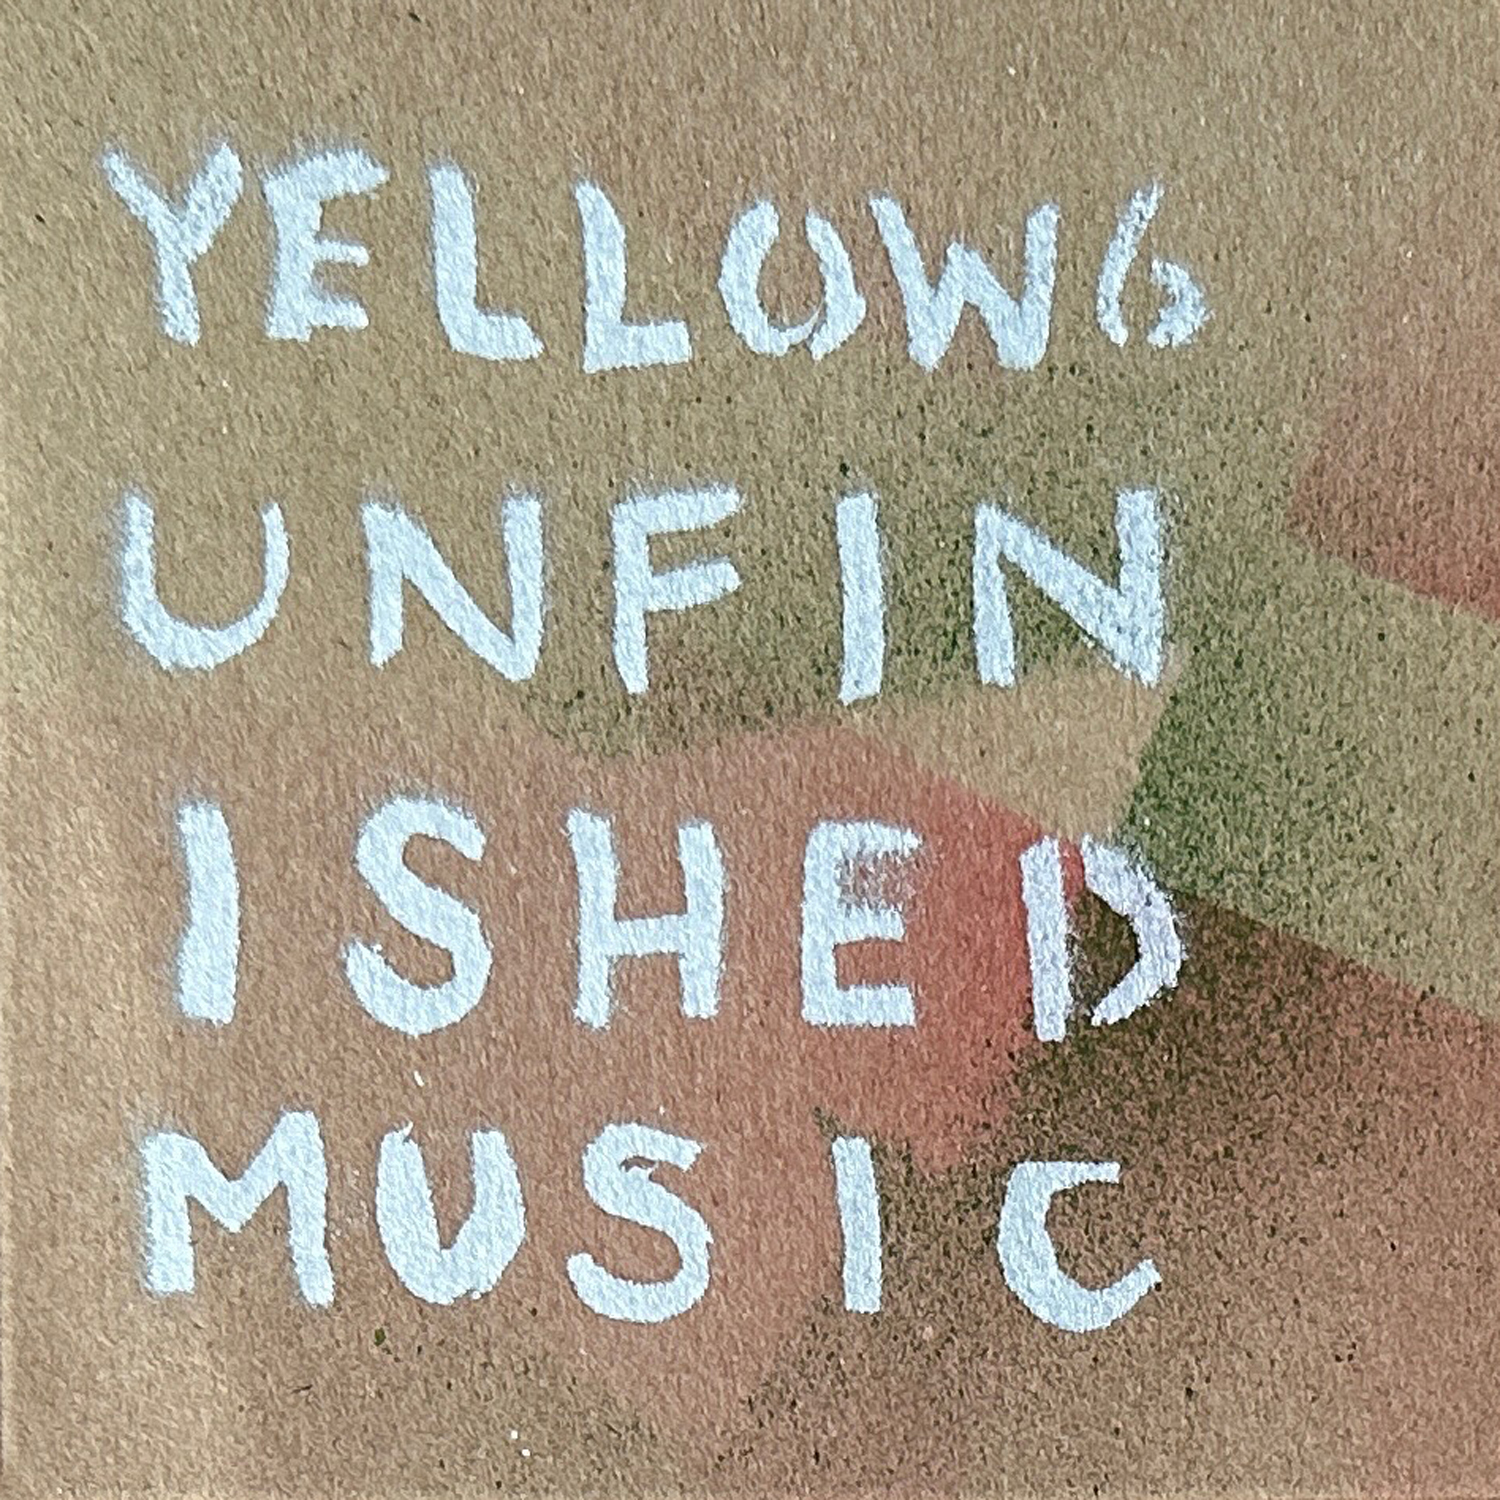 YELLOW6
UNFIN
ISHED
MUSIC